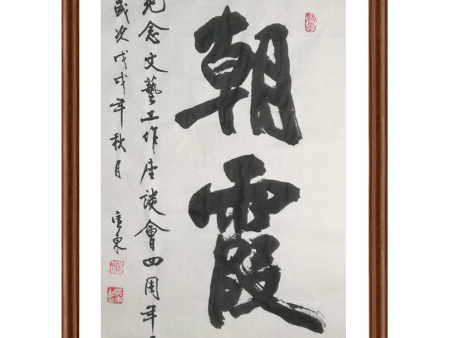 朝霞
纪念文藝工作座谈會四周年
歲次戊戌年秋月